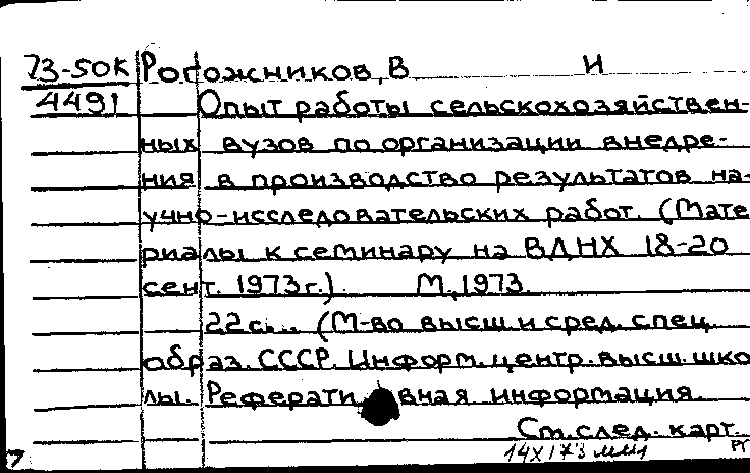 73-50К Рогожников, В И
4491 Опыт работы сельскохозяйствен-
ных вузов по организации внедре-
ния в производство результатов на-
учно-исследовательских работ. (Мате
риалы к семинару на ВДНХ 18-20
сент. 1973г.) М, 1973.
22с... (М-во высш и сред. спец
образ. СССР. Информ. центр. высш. шко
лы. Реферативная информация
См. след. карт.
14Х173 мм1 РГ